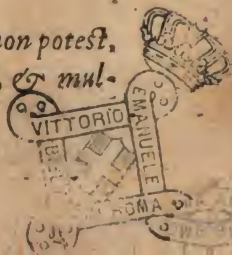 non potest,
& mul-
VITTORIO
EMANUELE
ROMA